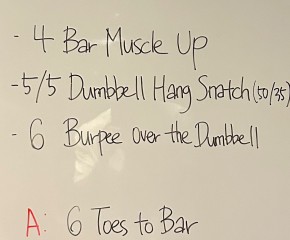 - 4 Bar Muscle Up
- 5/5 Dumbbell Hang Snatch (50/35)
- 6 Burpee Over the Dumbbell
A: 6 Toes to Bar